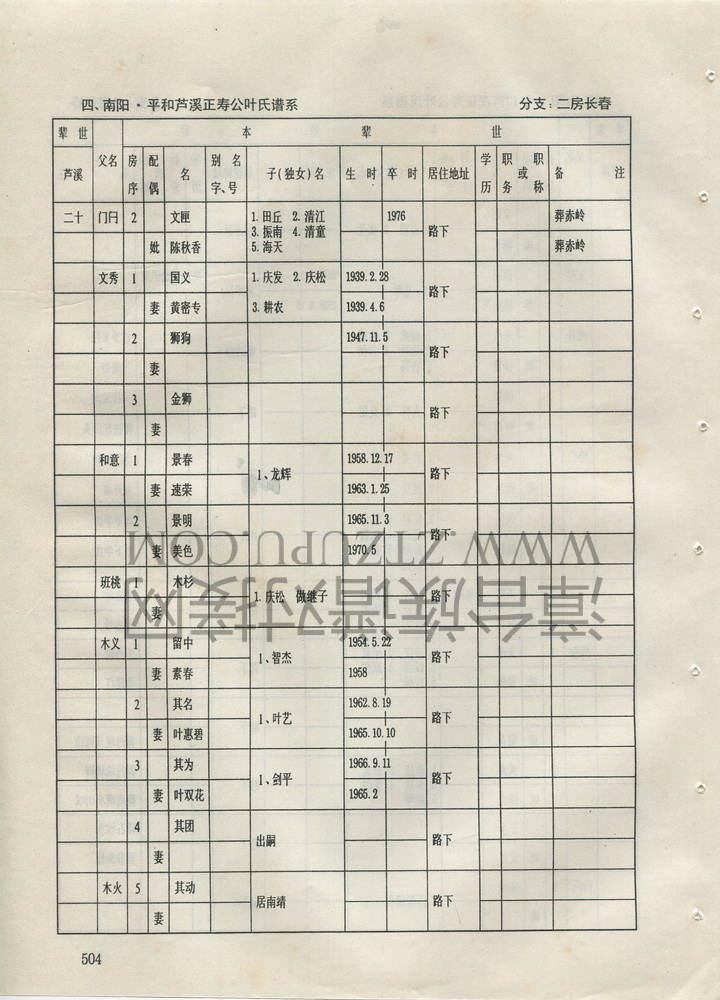 四、南阳·平和芦溪正寿公叶氏谱系 分支：二房长春
辈世 本辈世
芦溪 父名 房序 配偶 名 别名字、号 子(独女)名 生时 卒时 居住地址 学历 职或职务称 备注
二十 门闩 2 文匣 1.田丘 2.清江 3.振南 4.清童 5.海天 1976 路下 葬赤岭
妣 陈秋香 葬赤岭
文秀 1 国义 1.庆发 2.庆松 1939.2.28 路下
妻 黄密专 3.耕农 1939.4.6
2 狮狗 1947.11.5 路下
妻
3 金狮 路下
妻
和意 1 景春 1、龙辉 1958.12.17 路下
妻 速荣 1963.1.25
2 景明 1965.11.3 路下
妻 美色 1970.5
班桃 1 木杉 1.庆松 做继子 路下
妻
木义 1 留中 1、智杰 1954.5.22 路下
妻 素春 1958
2 其名 1、叶艺 1962.8.19 路下
妻 叶惠碧 1965.10.10
3 其为 1、剑平 1966.9.11 路下
妻 叶双花 1965.2
4 其团 出嗣 路下
妻
木火 5 其动 居南靖 路下
妻
504
WWW.ZTZUPU.COM
漳台族谱对接网